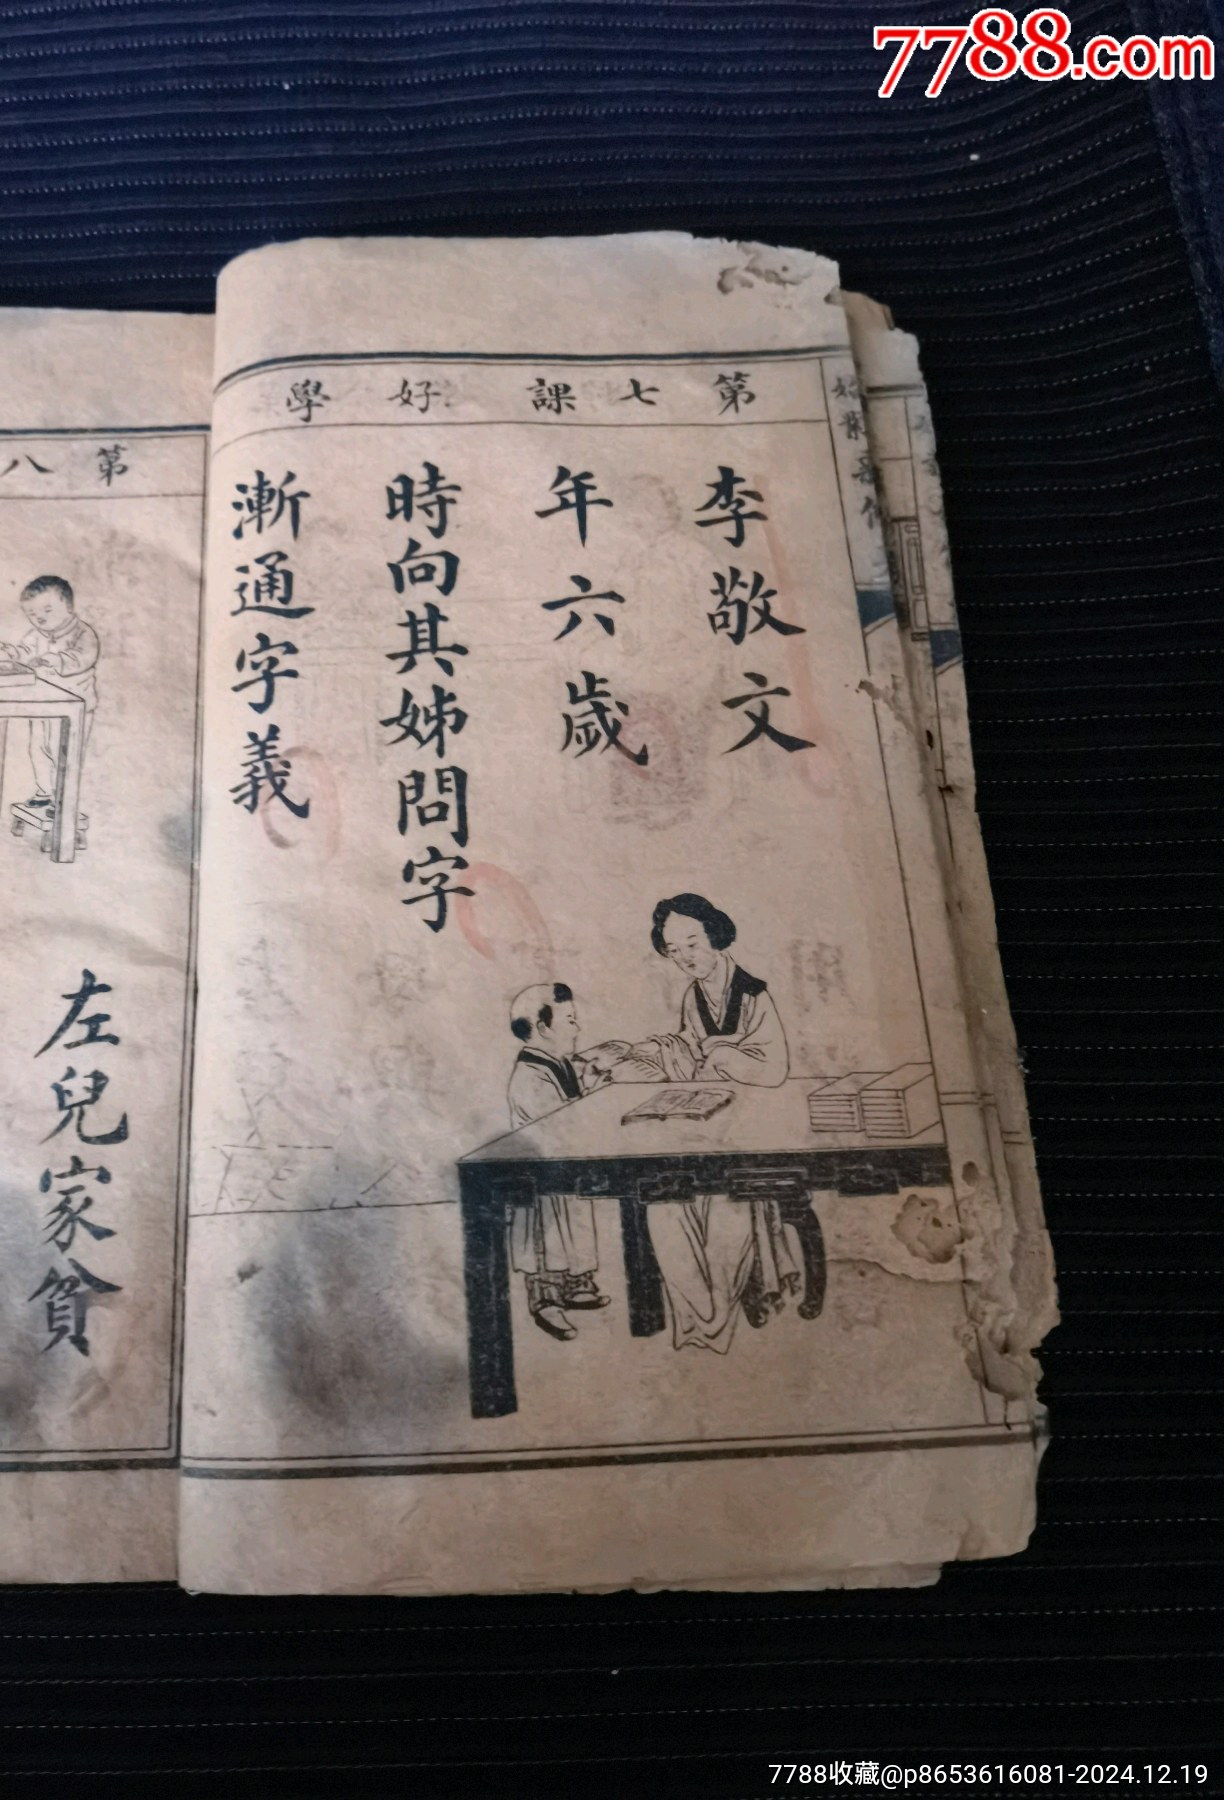 7788.com
第七課 好學
李敬文
年六歲
時向其姊問字
漸通字義
第八
左兒家貧
7788收藏@p8653616081-2024.12.19